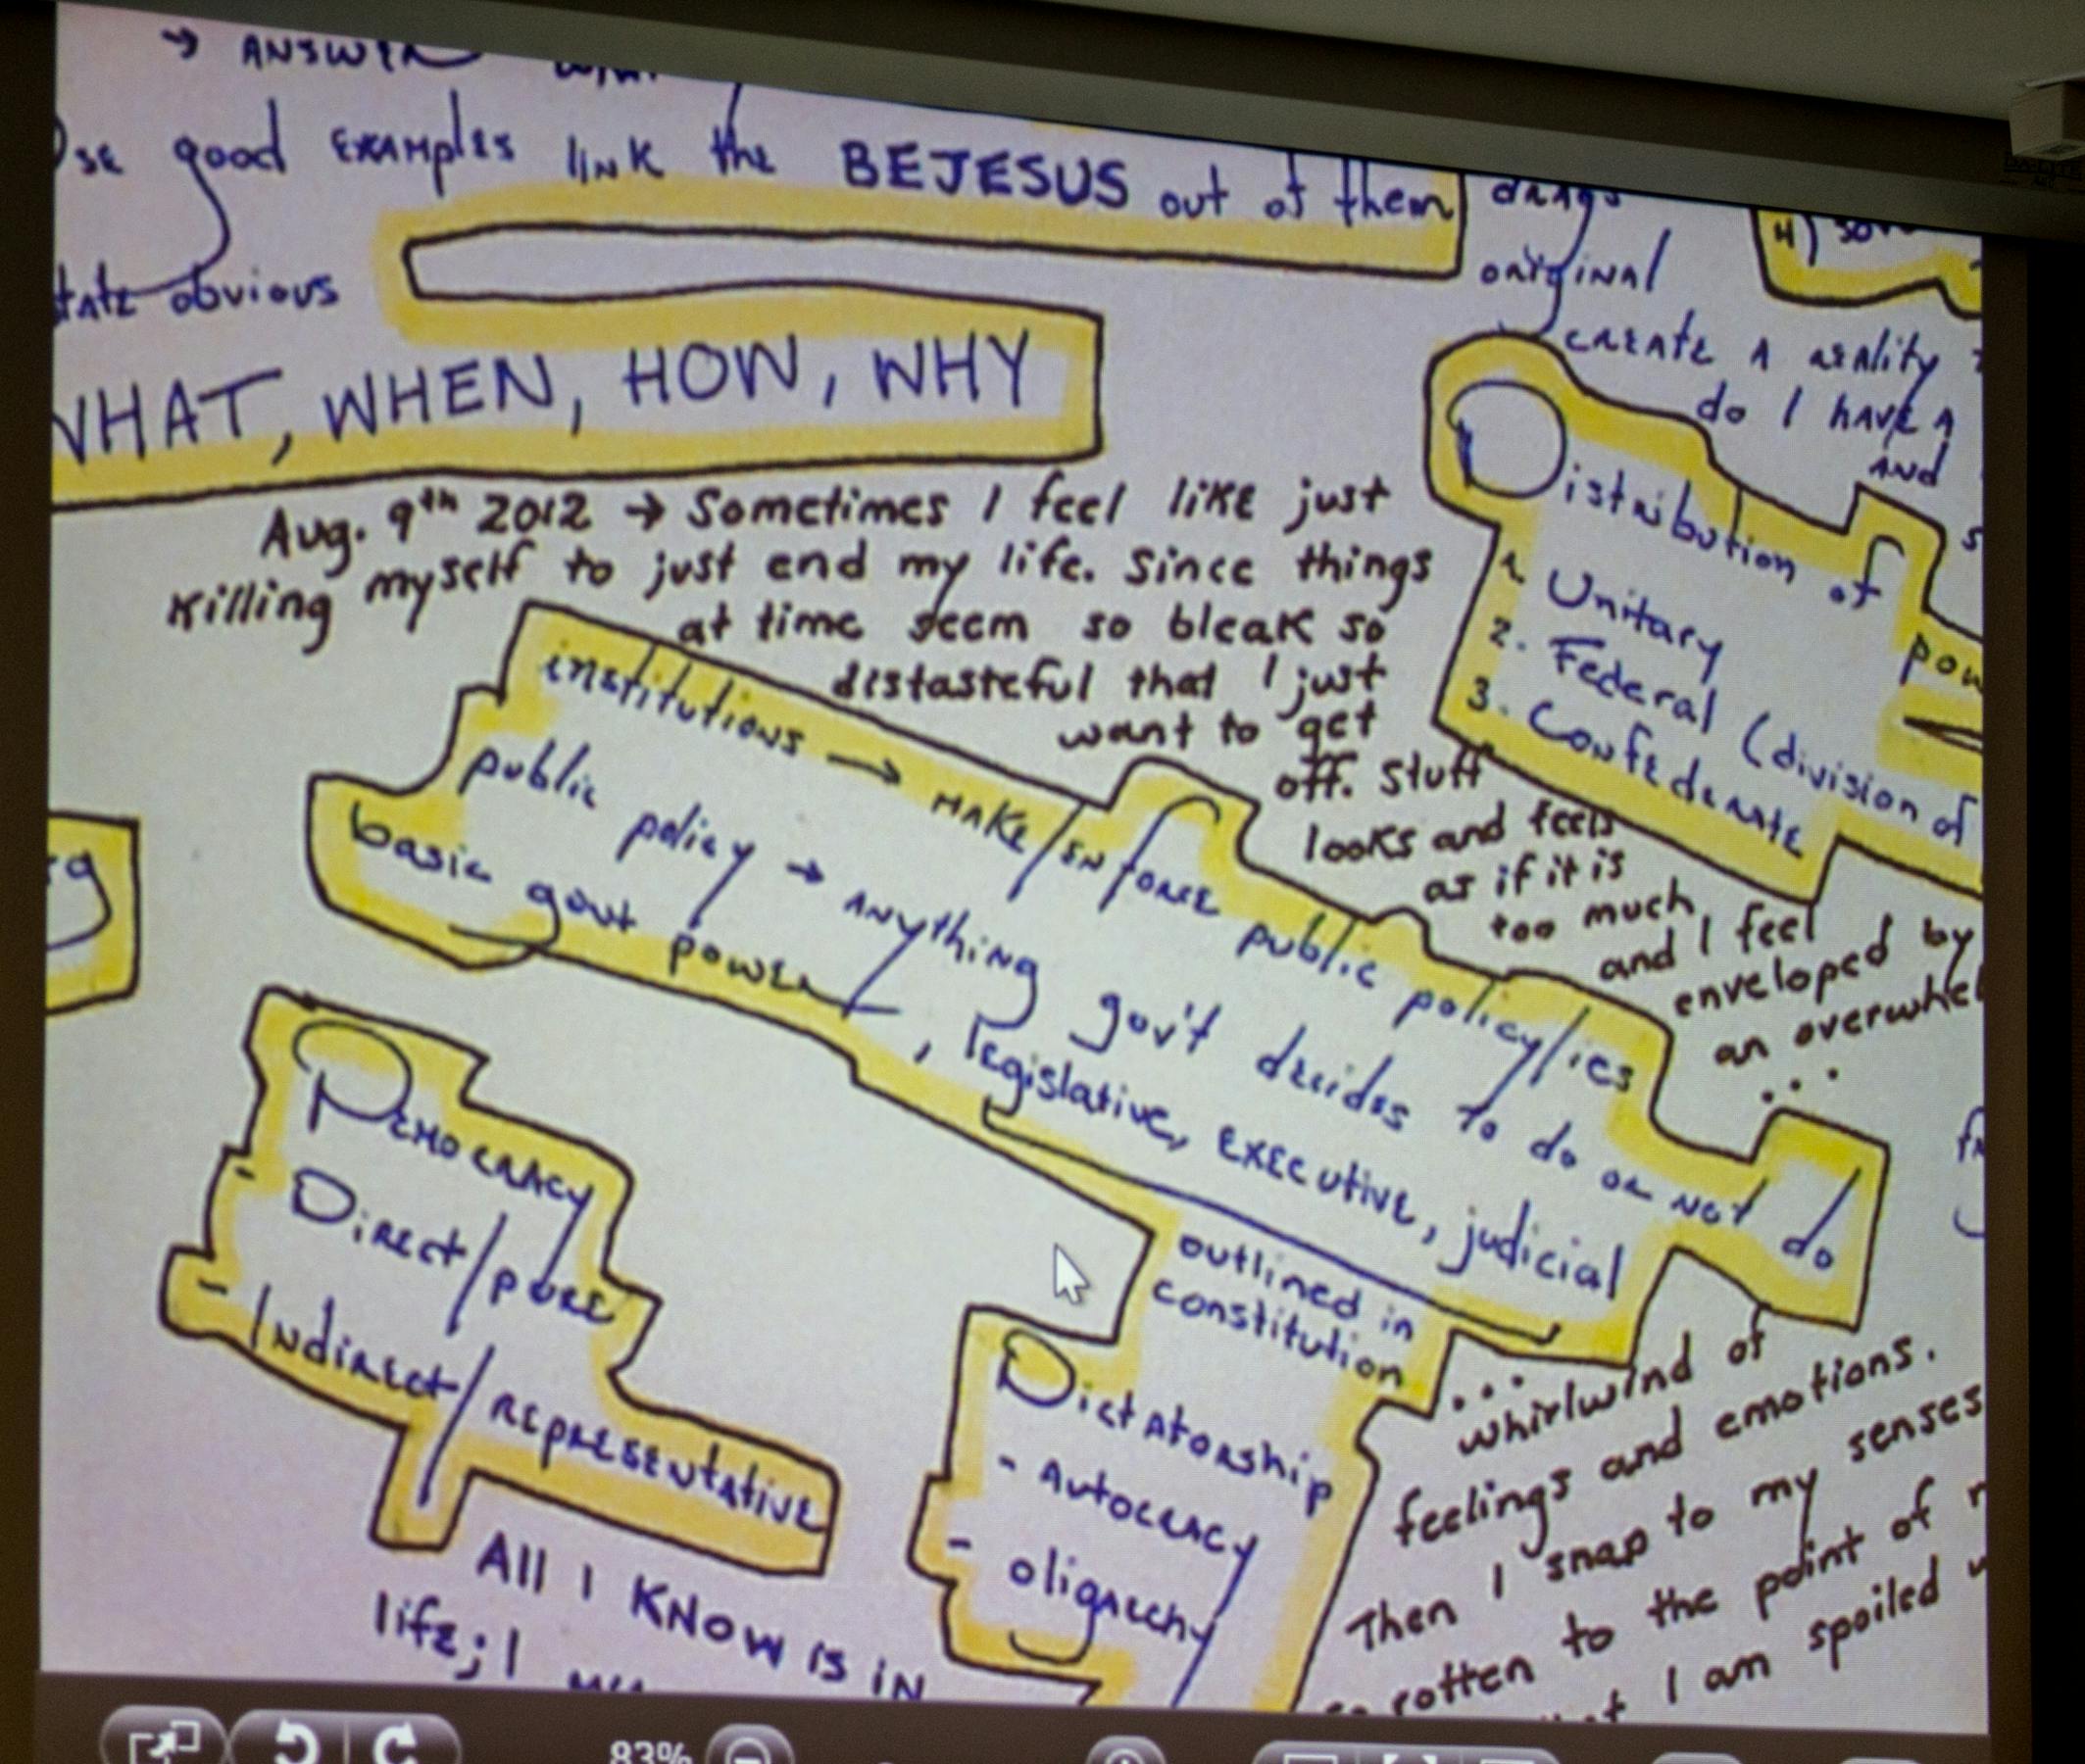 → ANSWER what
Use good EXAMPLES link the BEJESUS out of them
state obvious
WHAT, WHEN, HOW, WHY
drags
original
create a reality
do I HAVE A
AND
4)
Distribution of
1. Unitary
2. Federal (division of
3. Confederate
Aug. 9th 2012 → Sometimes I feel like just
killing myself to just end my life. Since things
at time seem so bleak so
distasteful that I just
want to get
off. Stuff
looks and feels
as if it is
too much,
and I feel
enveloped by
an overwhel
...
institutions → MAKE/ENFORCE public policy/ies
public policy → anything gov't decides to do or not do
basic govt power, legislative, executive, judicial
outlined in
constitution
Democracy
- Direct/pure
- Indirect/representative
Dictatorship
- Autocracy
- oligarchy
...
whirlwind of
feelings and emotions.
Then I snap to my senses
so rotten to the point of
I am spoiled
All I KNOW IS IN
life; I
83%